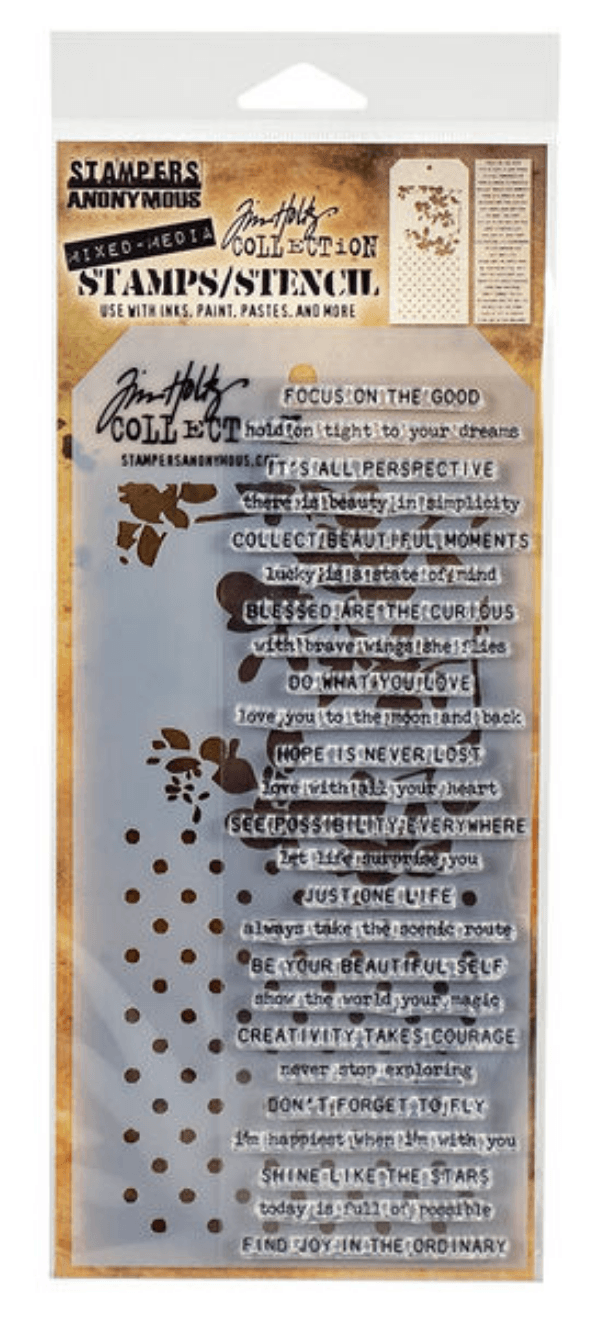 STAMPERS
ANONYMOUS
MIXED-MEDIA
Tim Holtz
COLLECTION
STAMPS/STENCIL
USE WITH INKS, PAINT, PASTES, AND MORE
Tim Holtz
COLLECT
STAMPERSANONYMOUS.CO
FOCUS ON THE GOOD
hold on tight to your dreams
IT'S ALL PERSPECTIVE
there is beauty in simplicity
COLLECT BEAUTIFUL MOMENTS
lucky is a state of mind
BLESSED ARE THE CURIOUS
with brave wings she flies
DO WHAT YOU LOVE
love you to the moon and back
HOPE IS NEVER LOST
love with all your heart
SEE POSSIBILITY EVERYWHERE
let life surprise you
JUST ONE LIFE
always take the scenic route
BE YOUR BEAUTIFUL SELF
show the world your magic
CREATIVITY TAKES COURAGE
never stop exploring
DON'T FORGET TO FLY
i'm happiest when i'm with you
SHINE LIKE THE STARS
today is full of possible
FIND JOY IN THE ORDINARY